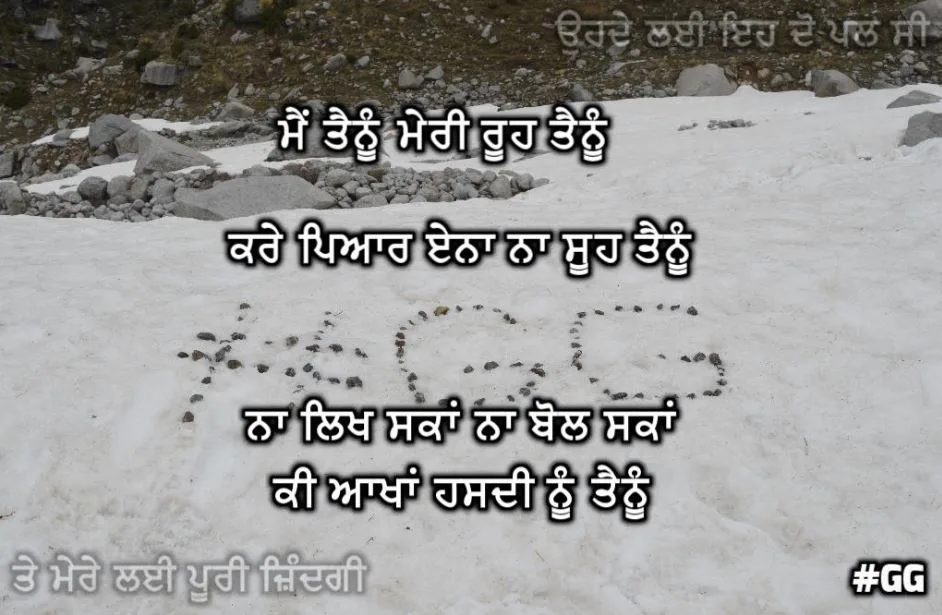 ਓਹਦੇ ਲਈ ਇਹ ਦੋ ਪਲ ਸੀ
ਮੈਂ ਤੈਨੂੰ ਮੇਰੀ ਰੂਹ ਤੈਨੂੰ
ਕਰੇ ਪਿਆਰ ਏਨਾ ਨਾ ਸੂਹ ਤੈਨੂੰ
#GG
ਨਾ ਲਿਖ ਸਕਾਂ ਨਾ ਬੋਲ ਸਕਾਂ
ਕੀ ਆਖਾਂ ਹਸਦੀ ਨੂੰ ਤੈਨੂੰ
ਤੇ ਮੇਰੇ ਲਈ ਪੂਰੀ ਜ਼ਿੰਦਗੀ
#GG